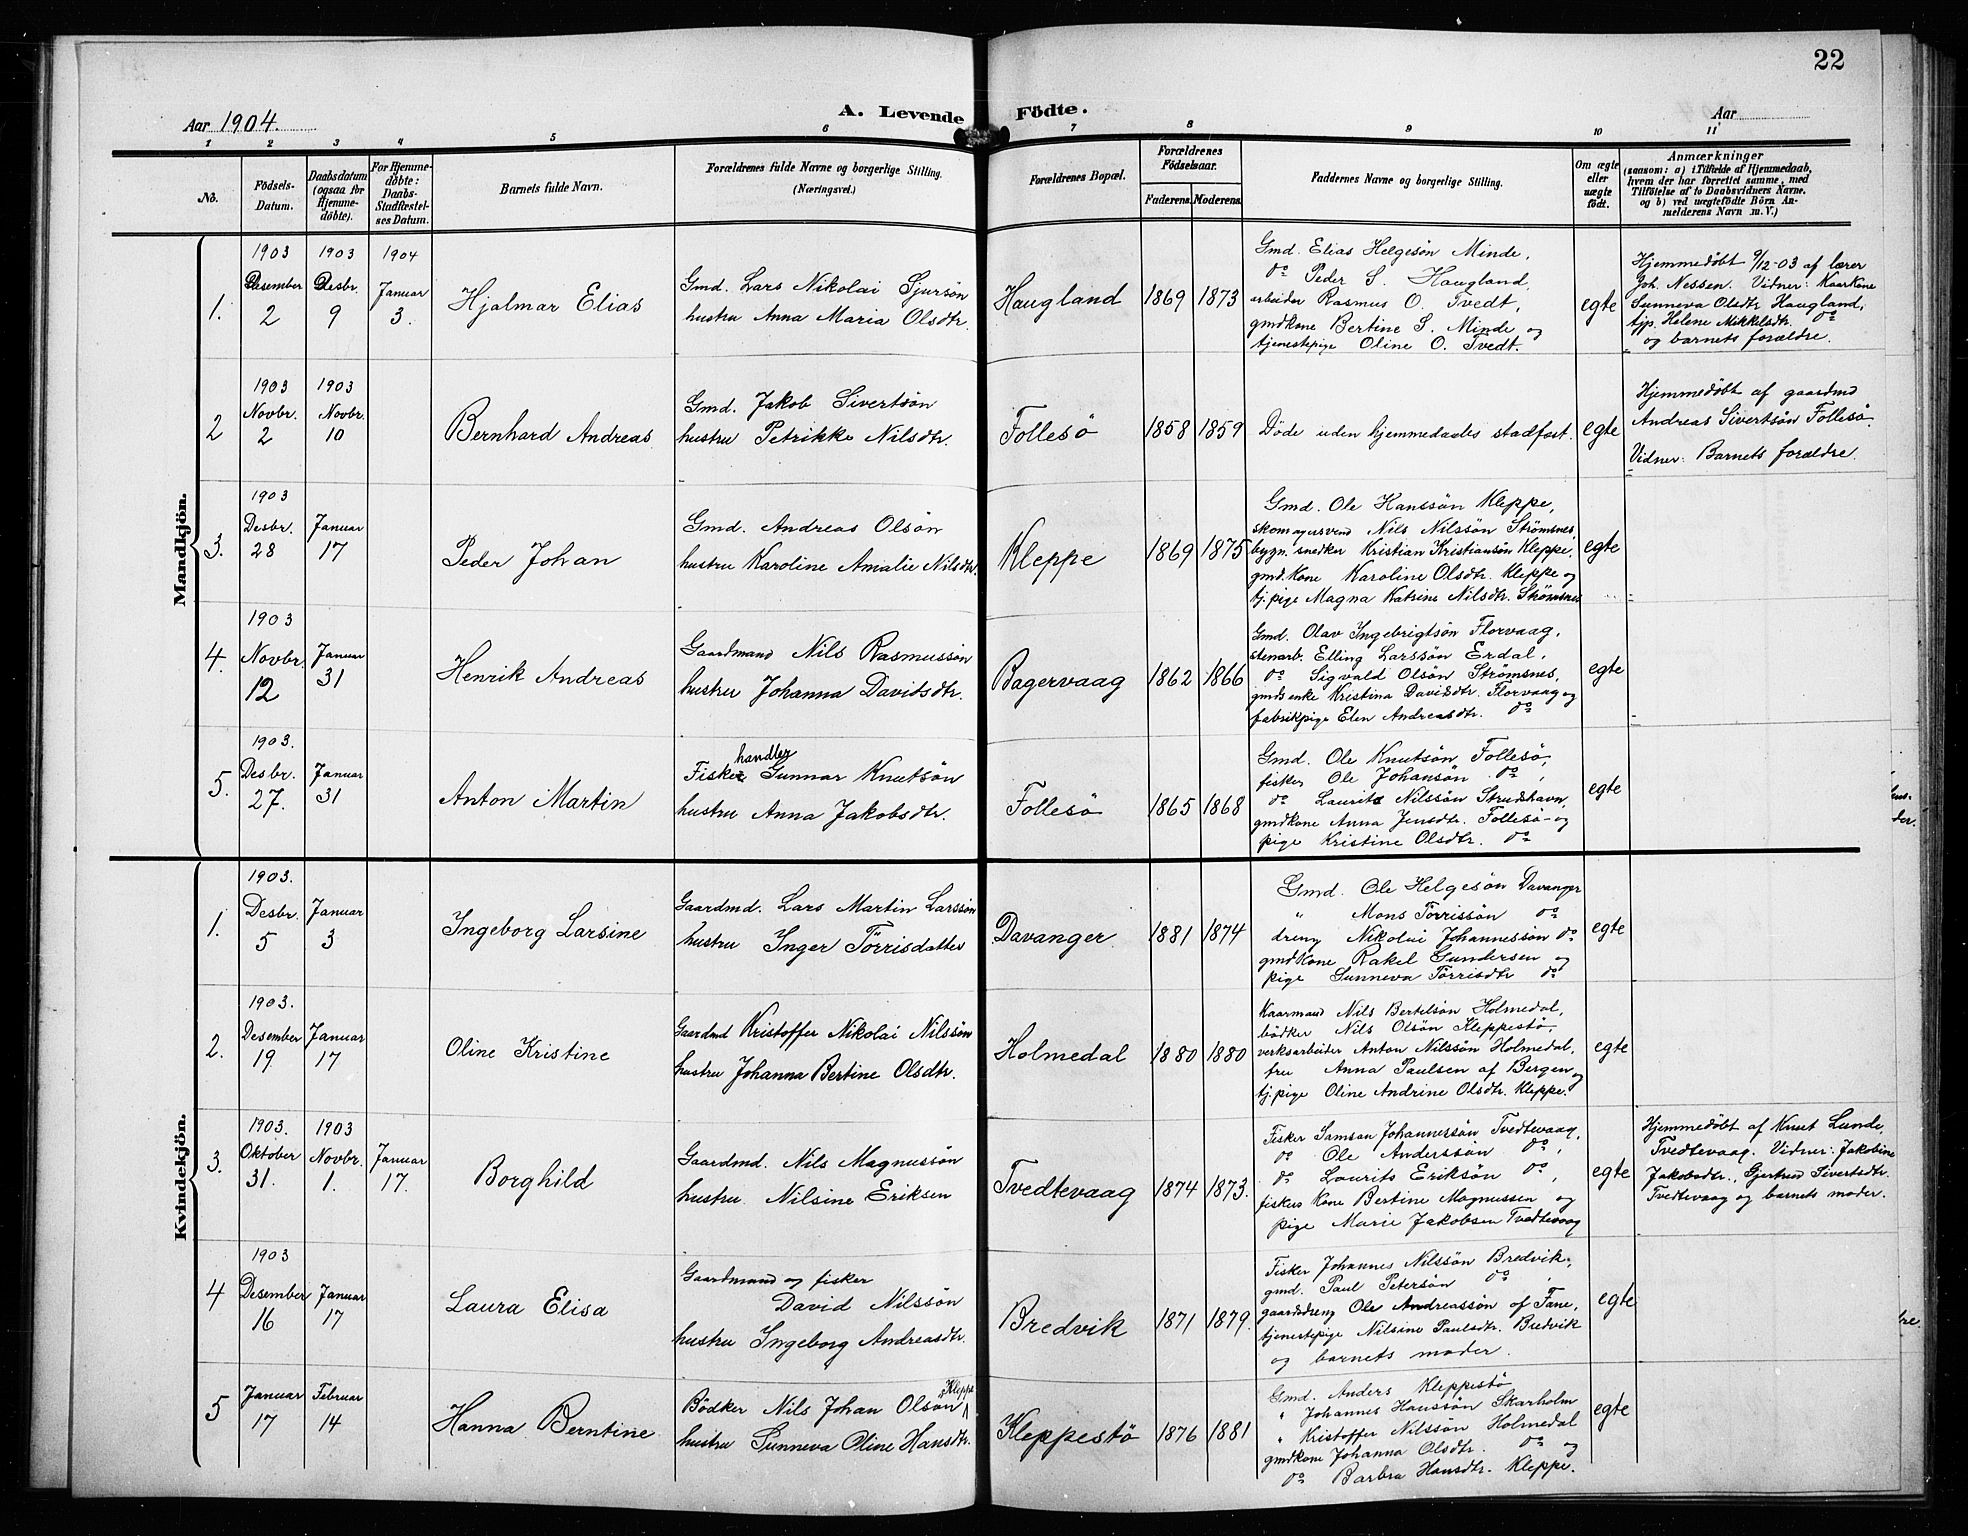 22
Aar 1904.
A. Levende Födte.
Aar
1 2 3 4 5 6 7 8 9 10 11
No.
Födsels-Datum.
Daabsdatum (ogsaa for Hjemme-döbte).
For Hjemme-döbte: Daabs-Stadfæstel-ses Datum.
Barnets fulde Navn.
Forældrenes fulde Navne og borgerlige Stilling.
(Næringsvei.)
Forældrenes Bopæl.
Forældrenes Födselsaar.
Faderens. Moderens.
Faddernes Navne og borgerlige Stilling.
Om ægte eller uægte födt.
Anmærkninger
(saasom: a) i Tilfælde af Hjemmedaab,
hvem der har forrettet samme, med
Tilföielse af to Daabsvidners Navne.
og b) ved uægtefödte Börn An-
melderens Navn m. V.)
Mandkjön.
1. 1903 Desember 2
1903 Desbr. 9
1904 Januar 3.
Hjalmar Elias
Gmd. Lars Nikolai Sjursön
hustru Anna Maria Olsdtr.
Haugland 1869 1873
Gmd. Elias Helgesön Minde,
do Peder S. Haugland,
arbeider Rasmus O. Tvedt,
gmdkone Bertine S. Minde og
tjenestepige Oline O. Tvedt.
egte
Hjemmedøbt 9/12-03 af lærer
Joh. Nessen. Vidner: Kaarkone
Sunneva Olsdtr Haugland,
tjp. Helene Mikkelsdtr. do
og barnets forældre.
2 1903 Novbr. 2
1903 Novbr. 10
Bernhard Andreas
Gmd. Jakob Sivertsön
hustru Petrikke Nilsdtr.
Follesö 1858 1859
Döde uden hjemmedaabs stadfæst.
egte
Hjemmedøbt af gaardmd
Andreas Sivertsön Follesö.
Vidner: Barnets forældre.
3. 1903 Desbr. 28
Januar 17
Peder Johan
Gmd. Andreas Olsön
hustru Karoline Amalie Nilsdtr.
Kleppe 1869 1875
Gmd. Ole Hanssön Kleppe,
skomagersvend Nils Nilssön Strømsnes,
bygn. snedker Kristian Kristiansön Kleppe,
gmd.kone Karoline Olsdtr. Kleppe og
tj.pige Magna Katrine Nilsdtr. Strömsnes
egte
4. 1903 Novbr. 12
Januar 31
Henrik Andreas
Gaardmand Nils Rasmussön
hustru Johanna Davidsdtr.
Bagervaag 1862 1866
Gmd. Olav Ingebrigtsön Florvaag,
stenarb. Elling Larssön Erdal,
do Sigvald Olsön Strömsnes,
gmds enke Kristina Davidsdtr. Florvaag og
fabrikpige Elen Andreasdtr. do
egte
5. 1903. Desbr. 27.
Januar 31
Anton Martin
handler
Fiske Gunnar Knutsön
hustru Anna Jakobsdtr.
Follesö 1865 1868
Gmd. Ole Knutsön Follesö,
fisker Ole Johansön do,
do Laurits Nilssön Strudshavn,
gmdkone Anna Jensdtr. Follesö og
pige Kristine Olsdtr. do
egte
Kvindekjön.
1. 1903. Desbr. 5
Januar 3
Ingeborg Larsine
Gaardmd. Lars Martin Larssön
hustru Inger Törrisdatter
Davanger 1881 1874
Gmd. Ole Helgesön Davanger
" Mons Törrissön do
dreng Nikolai Johannessön do
gmdkone Rakel Gundersen og
pige Sunneva Törrisdtr do
egte
2. 1903. Desember 19.
Januar 17
Oline Kristine
Gaardmd Kristoffer Nikolai Nilssön
hustru Johanna Bertine Olsdtr.
Holmedal 1880 1880
Kaarmand Nils Bertelsön Holmedal,
bödker Nils Olsön Kleppestö,
verksarbeider Anton Nilssön Holmedal,
fru Anna Paulsen af Bergen og
tj.pige Oline Andrine Olsdtr. Kleppe.
egte
3. 1903. Oktober 31.
1903 Novbr. 1.
Januar 17.
Borghild
Gaardmd. Nils Magnussön
hustru Nilsine Eriksen
Tvedtevaag 1874 1873.
Fisker Samson Johannessön Tvedtevaag,
do Ole Anderssön do,
do Laurits Eriksön do,
fiskers kone Bertine Magnussen og
pige Marie Jakobsen Tvedtevaag
egte
Hjemmedøbt af Knut Lunde,
Tvedtevaag. Vidner: Jakobine
Jakobsdtr., Gjertrud Sivertsdtr.
Tvedtevaag og barnets moder.
4 1903 Desember 16
Januar 17
Laura Elisa
Gaardmand og fisker
David Nilssön
hustru Ingeborg Andreasdtr.
Bredvik 1871 1879.
Fisker Johannes Nilssön Bredvik,
gmd. Paul Petersön do,
gaardsdreng Ole Andreassön af Fane,
tjenestepige Nilsine Paulsdtr. Bredvik
og barnets moder.
egte
5 Januar 17
Februar 14
Hanna Berntine
Bödker Nils Johan Olsön Kleppe
hustru Sunneva Oline Hansdtr.
Kleppestö 1876 1881
Gmd. Anders Kleppestö
" Johannes Hanssön Skarholm
" Kristoffer Nilssön Holmedal
gmdkone Johanna Olsdtr. do og
do Barbra Hansdtr. Kleppe.
egte